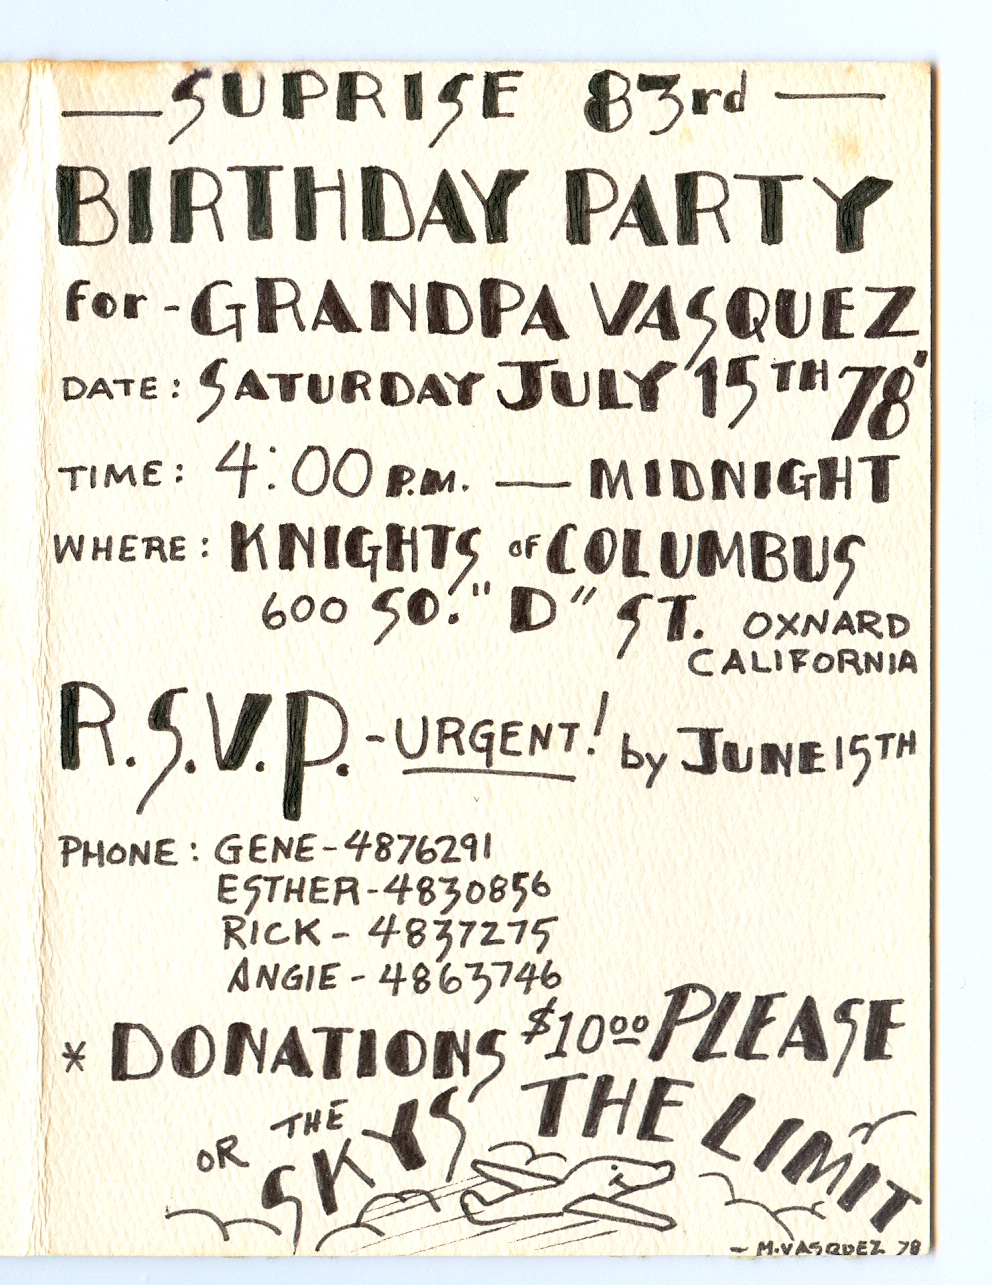 — SUPRISE 83rd —
BIRTHDAY PARTY
for - GRANDPA VASQUEZ
DATE: SATURDAY JULY 15TH 78'
TIME: 4:00 P.M. — MIDNIGHT
WHERE: KNIGHTS OF COLUMBUS
600 SO. "D" ST. OXNARD
CALIFORNIA
R.S.V.P. - URGENT! by JUNE 15TH
PHONE: GENE - 4876291
ESTHER - 4830856
RICK - 4837275
ANGIE - 4863746
* DONATIONS $10.00 PLEASE
OR THE SKYS THE LIMIT
- M. VASQUEZ 78